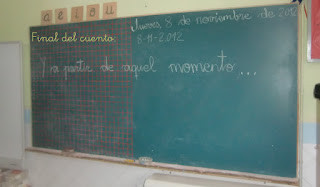 a e i o u
Jueves, 8 de noviembre de 2012
Final del cuento:
8-11-2012
Y a partir de aquel momento...